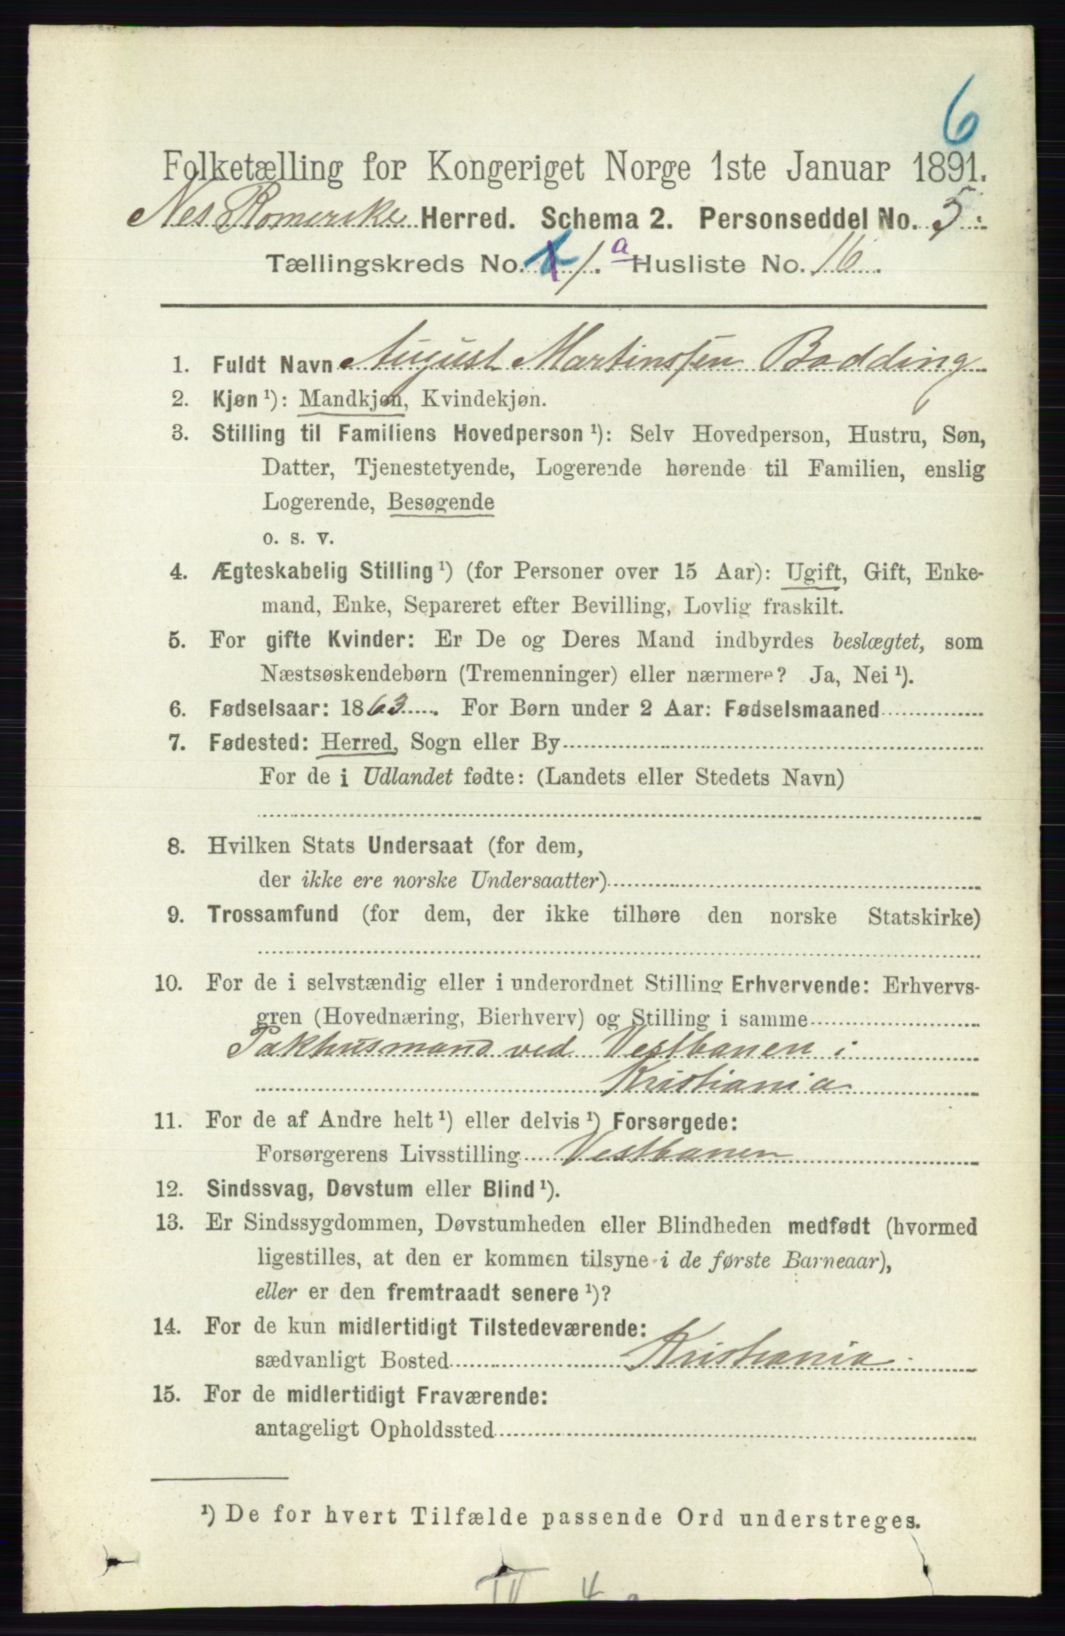 6
Folketælling for Kongeriget Norge 1ste Januar 1891.
Nes Romerike Herred. Schema 2. Personseddel No. 5.
Tællingskreds No. 1.a Husliste No. 16.
1. Fuldt Navn August Martinssen Bodding
2. Kjøn ¹): Mandkjøn, Kvindekjøn.
3. Stilling til Familiens Hovedperson ¹): Selv Hovedperson, Hustru, Søn,
Datter, Tjenestetyende, Logerende hørende til Familien, enslig
Logerende, Besøgende
o. s. v.
4. Ægteskabelig Stilling ¹) (for Personer over 15 Aar): Ugift, Gift, Enke-
mand, Enke, Separeret efter Bevilling, Lovlig fraskilt.
5. For gifte Kvinder: Er De og Deres Mand indbyrdes beslægtet, som
Næstsøskendebørn (Tremenninger) eller nærmere? Ja, Nei ¹).
6. Fødselsaar: 1863. For Børn under 2 Aar: Fødselsmaaned
7. Fødested: Herred, Sogn eller By
For de i Udlandet fødte: (Landets eller Stedets Navn)
8. Hvilken Stats Undersaat (for dem,
der ikke ere norske Undersaatter)
9. Trossamfund (for dem, der ikke tilhøre den norske Statskirke)
10. For de i selvstændig eller i underordnet Stilling Erhvervende: Erhvervs-
gren (Hovednæring, Bierhverv) og Stilling i samme
Pakhusmand ved Vestbanen i
Kristiania
11. For de af Andre helt ¹) eller delvis ¹) Forsørgede:
Forsørgerens Livsstilling Vestbanen
12. Sindssvag, Døvstum eller Blind ¹).
13. Er Sindssygdommen, Døvstumheden eller Blindheden medfødt (hvormed
ligestilles, at den er kommen tilsyne i de første Barneaar),
eller er den fremtraadt senere ¹)?
14. For de kun midlertidigt Tilstedeværende:
sædvanligt Bosted Kristiania
15. For de midlertidigt Fraværende:
antageligt Opholdssted
¹) De for hvert Tilfælde passende Ord understreges.
IV 4